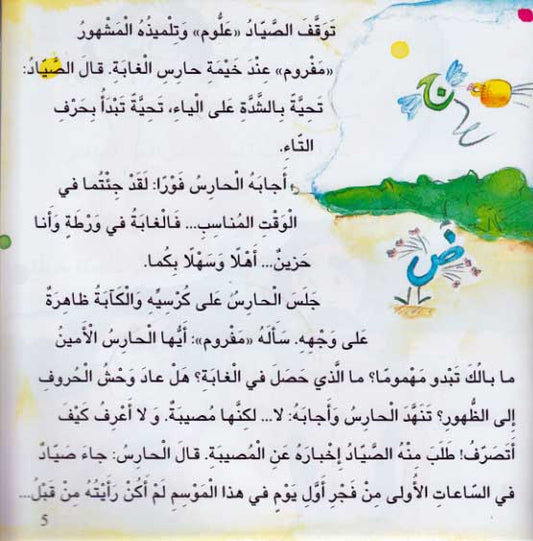 تَوَقَّفَ الصَّيّادُ «عَلُّوم» وَتِلْميذُهُ الْمَشْهورُ
«مَفْروم» عِنْدَ خَيْمَةِ حارِسِ الْغابَة. قالَ الصَّيّادُ:
تَحِيَّةً بِالشَّدَّةِ عَلى الْياءِ، تَحِيَّةً تَبْدَأُ بِحَرْفِ
التّاءِ.
أَجابَهُ الْحارِسُ فَوْرًا: لَقَدْ جِئْتُما في
الْوَقْتِ الْمُناسِبِ... فَالْغابَةُ في وَرْطَةٍ وَأَنا
حَزينٌ... أَهْلًا وَسَهْلًا بِكُما.
جَلَسَ الْحارِسُ عَلى كُرْسِيِّهِ وَالْكَآبَةُ ظاهِرَةٌ
عَلى وَجْهِهِ. سَأَلَهُ «مَفْروم»: أَيُّها الْحارِسُ الْأَمينُ
ما بالُكَ تَبْدو مَهْمومًا؟ ما الَّذي حَصَلَ في الْغابَةِ؟ هَلْ عادَ وَحْشُ الْحُروفِ
إِلى الظُّهورِ؟ تَنَهَّدَ الْحارِسُ وَأَجابَهُ: لا... لكِنَّها مُصيبَةٌ. وَلا أَعْرِفُ كَيْفَ
أَتَصَرَّفُ! طَلَبَ مِنْهُ الصَّيّادُ إِخْبارَهُ عَنِ الْمُصيبَةِ. قالَ الْحارِسُ: جاءَ صَيّادٌ
في السّاعاتِ الْأولى مِنْ فَجْرِ أَوَّلِ يَوْمٍ في هذا الْمَوْسِمِ لَمْ أَكُنْ رَأَيْتُهُ مِنْ قَبْلُ...
5
خ
ض